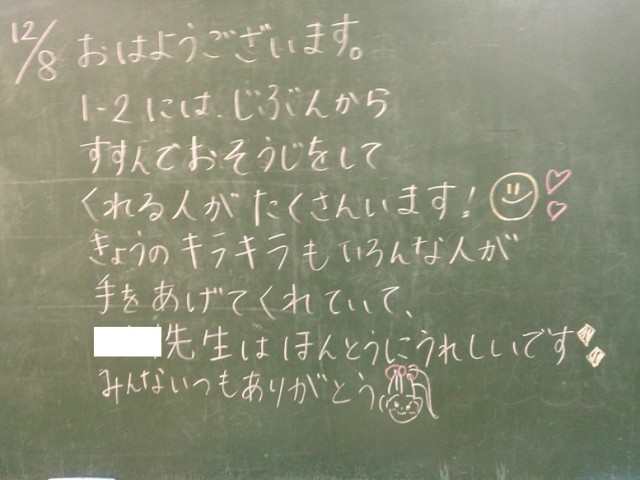 12/8 おはようございます。
1-2には、じぶんから
すすんでおそうじをして
くれる人がたくさんいます!
きょうのキラキラもいろんな人が
手をあげてくれていて、
先生はほんとうにうれしいです
みんないつもありがとう